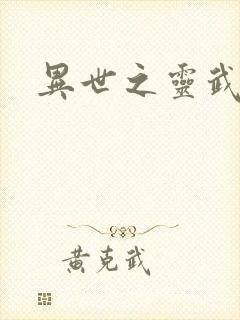 異世之靈武
黃克武